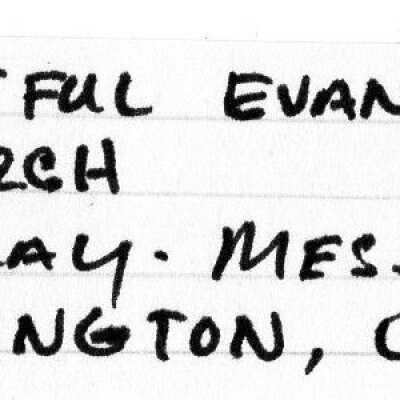 FUL EVAN
RCH
AY. MES.
NGTON, C